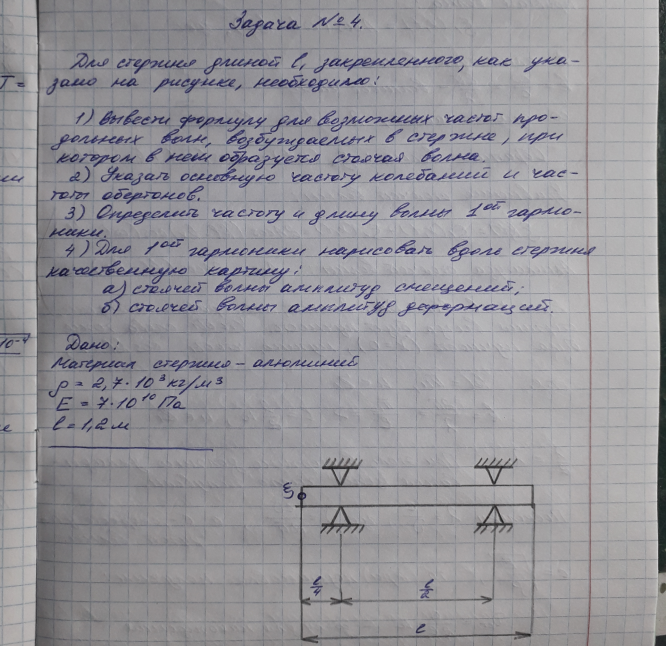 Задача № 4.
Для стержня длиной l, закрепленного, как ука-
зано на рисунке, необходимо:
1) вывести формулу для возможных частот про-
дольных волн, возбуждаемых в стержне, при
котором в нем образуется стоячая волна.
2) Указать основную частоту колебаний и час-
тоты обертонов.
3) Определить частоту и длину волны 1ой гармо-
ники.
4) Для 1ой гармоники нарисовать вдоль стержня
качественную картину:
а) стоячей волны амплитуд смещений;
б) стоячей волны амплитуд деформаций.
Дано:
Материал стержня - алюминий
ρ = 2,7·10³ кг/м³
E = 7·10¹⁰ Па
l = 1,2 м
ξ
l/4
l/2
l
T =
10⁻⁴